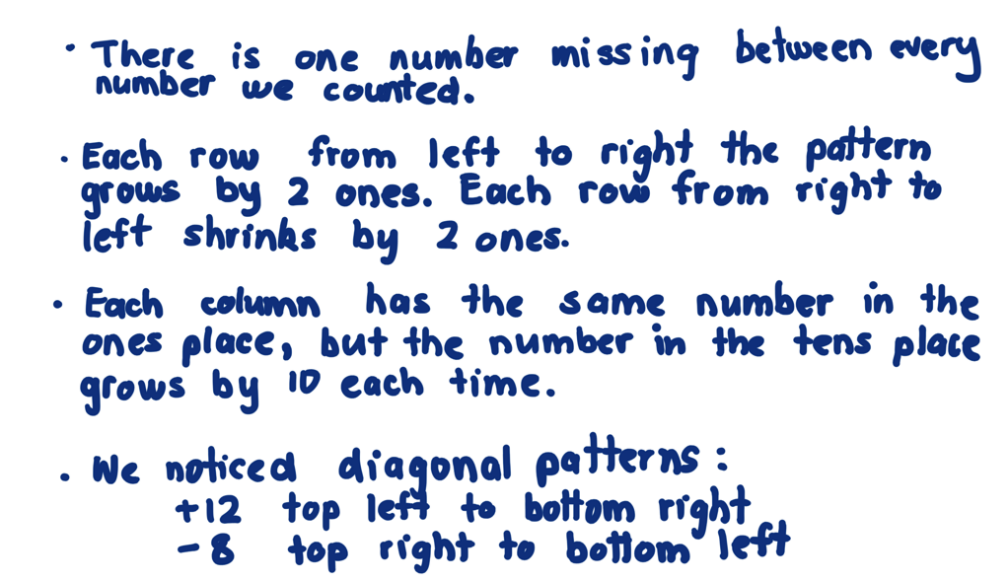 · There is one number missing between every
number we counted.
· Each row from left to right the pattern
grows by 2 ones. Each row from right to
left shrinks by 2 ones.
· Each column has the same number in the
ones place, but the number in the tens place
grows by 10 each time.
· We noticed diagonal patterns:
+12 top left to bottom right
-8 top right to bottom left